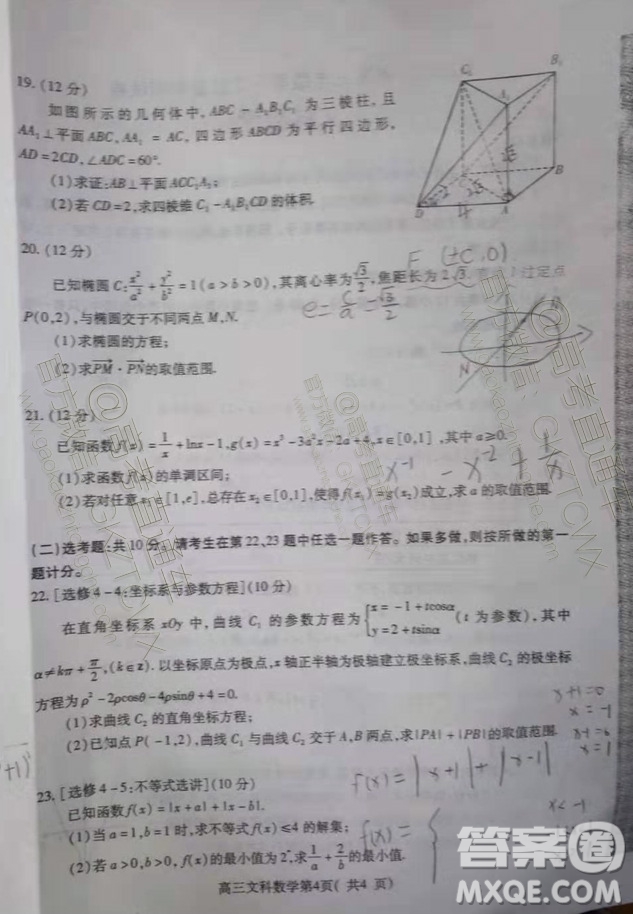 19. (12分)
如图所示的几何体中,ABC - A₁B₁C₁ 为三棱柱,且
AA₁⊥平面ABC,AA₁ = AC,四边形ABCD为平行四边形,
AD=2CD,∠ADC=60°.
(1)求证:AB⊥平面ACC₁A₁;
(2)若CD=2,求四棱锥 C₁-A₁B₁CD的体积.
C₁
B₁
A₁
B
D
A
20. (12分)
F (±C,0)
已知椭圆C: x²/a² + y²/b² = 1(a>b>0),其离心率为 √3/2,焦距长为2√3, l过定点
e= c/a = √3/2
P(0,2),与椭圆交于不同两点M,N.
(1)求椭圆的方程;
(2)求PM·PN的取值范围.
M
N
21. (12分)
已知函数f(x) = 1/x + lnx-1,g(x)=x³-3a²x-2a+4,x∈[0,1],其中a≥0.
(1)求函数f(x)的单调区间;
x⁻¹ - x⁻² + 1/x
(2)若对任意x₁∈[1,e],总存在x₂∈[0,1],使得f(x₁)=g(x₂)成立,求a的取值范围.
(二)选考题:共10分。请考生在第22、23题中任选一题作答。如果多做,则按所做的第一
题计分。
22. [选修4-4:坐标系与参数方程](10分)
在直角坐标系xOy中,曲线 C₁ 的参数方程为{x=-1+tcosα y=2+tsinα (t为参数),其中
α≠kπ+π/2,(k∈z).以坐标原点为极点,x轴正半轴为极轴建立极坐标系,曲线 C₂ 的极坐标
方程为ρ²-2ρcosθ-4ρsinθ+4=0.
(1)求曲线 C₂ 的直角坐标方程;
x+1=0
x=-1
(2)已知点P(-1,2),曲线C₁与曲线C₂交于A,B两点,求|PA|+|PB|的取值范围.
x=1
f(x)= |x+1|+|x-1|
23. [选修4-5:不等式选讲](10分)
已知函数f(x)=|x+a|+|x-b|.
(1)当a=1,b=1时,求不等式f(x)≤4的解集;
f(x)= {
x<-1
(2)若a>0,b>0,f(x)的最小值为2,求 1/a + 2/b 的最小值.
高三文科数学第4页( 共4页)
答案圈
MXQE.COM
官方微信公众号:高考直通车
www.gaokaozhitongche.com
官方微信:高考直通车
@高考直通车
GKZTCWX